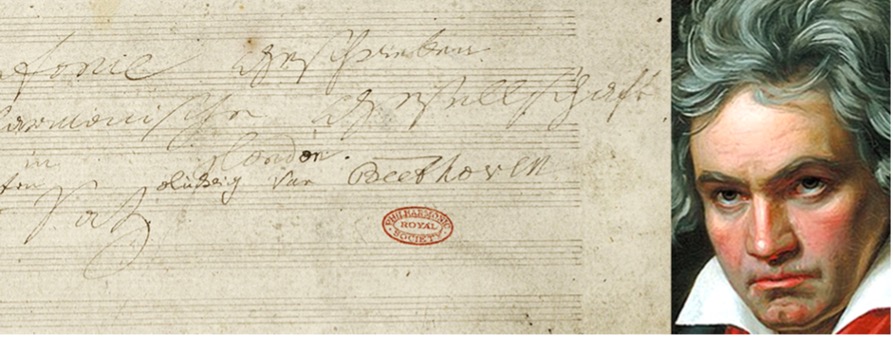 fonie geschrieben
armonische Gesellschaft
in London.
ludwig van Beethoven
Saz
PHILHARMONIC
ROYAL
SOCIETY